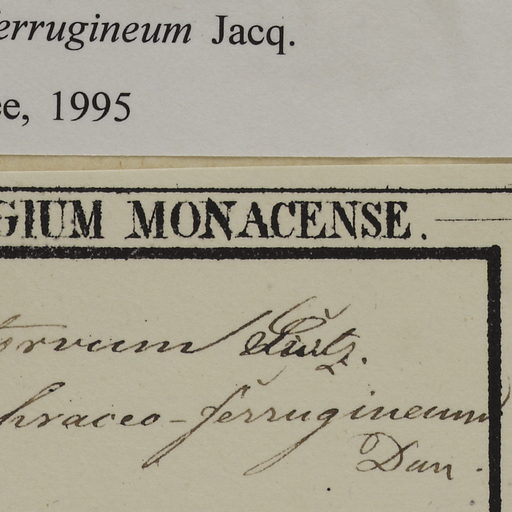 errugineum Jacq.
ee, 1995
GIUM MONACENSE.
torvum
hraceo-ferrugineum
Dun.